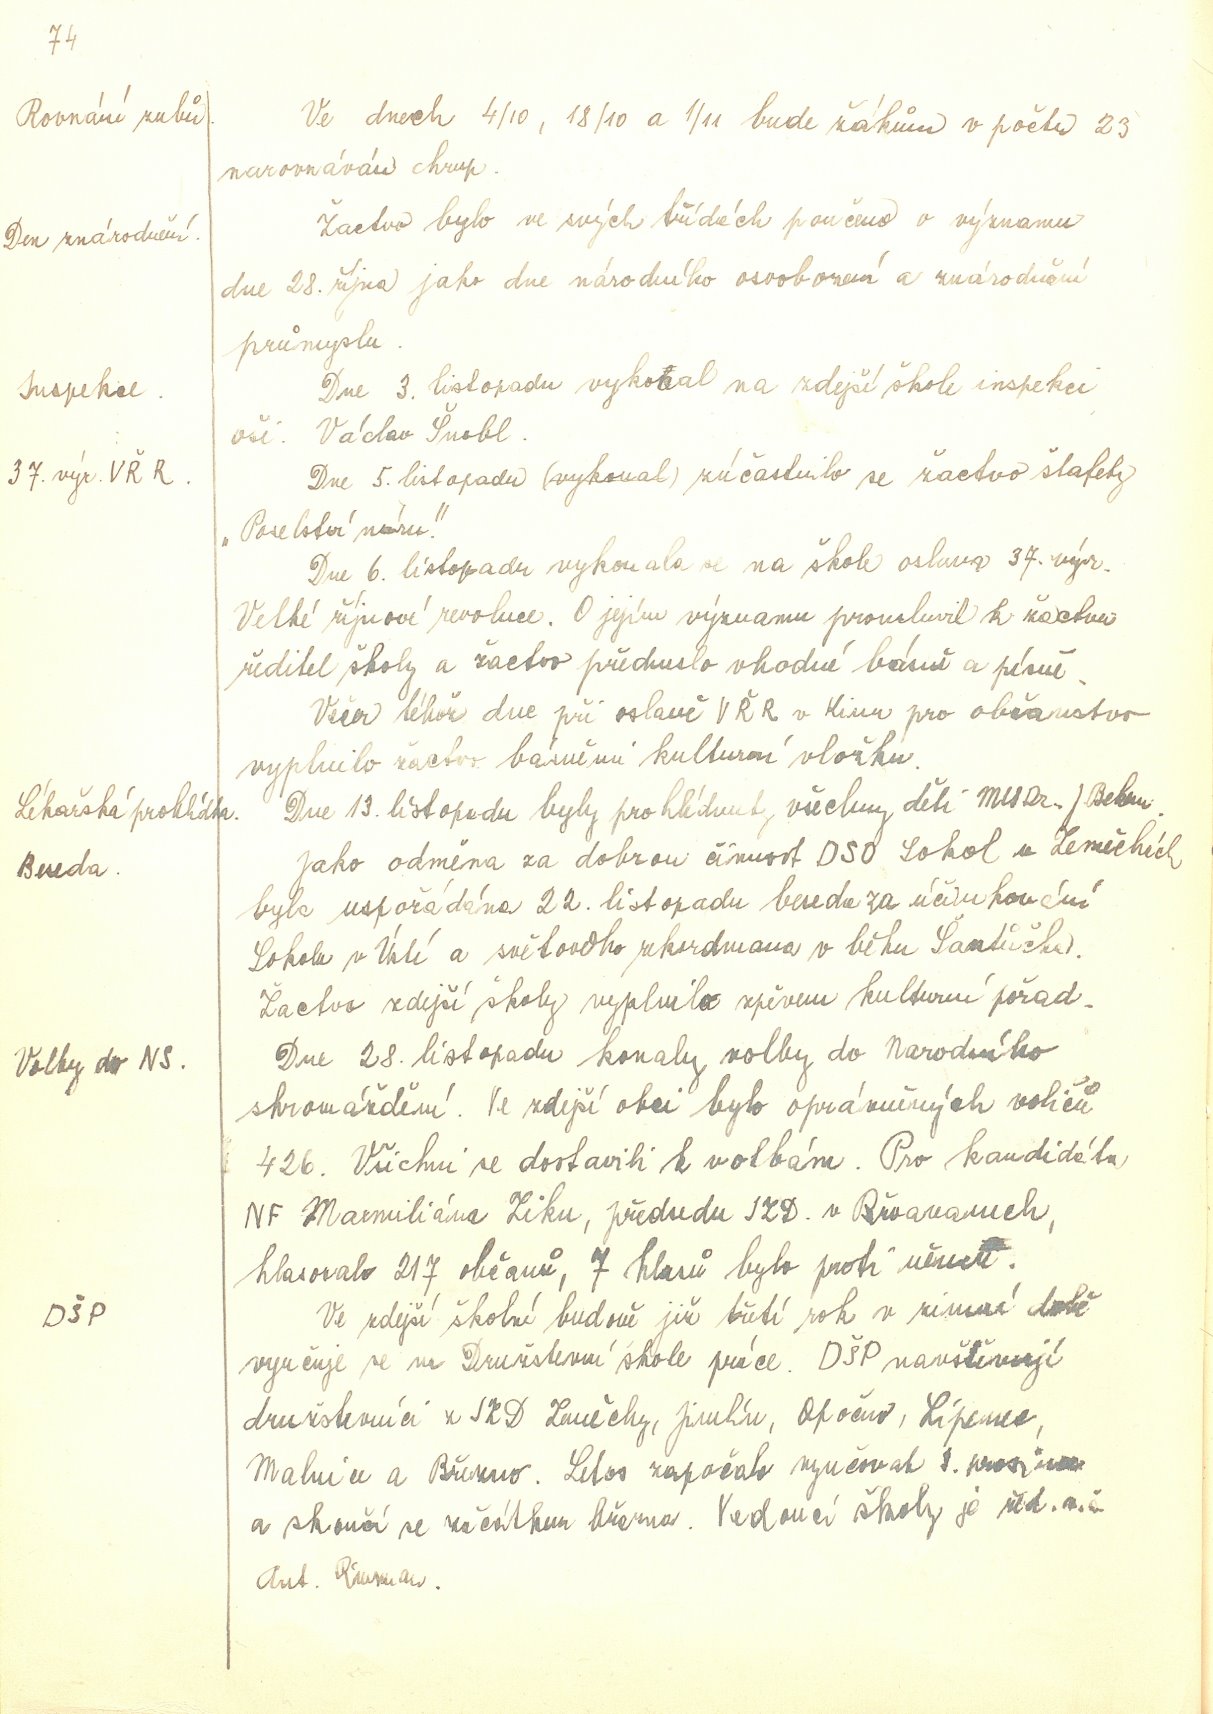 74
Rovnání zubů. Ve dnech 4/10, 18/10 a 1/11 bude žákům v počtu 23
narovnáván chrup.
Den znárodnění. Žactvo bylo ve svých třídách poučeno o významu
dne 28. října jako dne národního osvobození a znárodnění
průmyslu.
Inspekce. Dne 3. listopadu vykonal na zdejší škole inspekci
oši. Václav Šnobl.
37. výr. VŘR. Dne 5. listopadu (vykonal) zúčastnilo se žactvo štafety
„Poselství míru."
Dne 6. listopadu vykonala se na škole oslava 37. výr.
Velké říjnové revoluce. O jejím významu promluvil k žactvu
ředitel školy a žactvo předneslo vhodné básně a písně.
Večer téhož dne při oslavě VŘR v Kinu pro občanstvo
vyplnilo žactvo básněmi kulturní vložku.
Lékařská prohlídka. Dne 13. listopadu byly prohlédnuty všechny děti MUDr.
Beseda. Jako odměna za dobrou činnost DSO Sokol v Zeměchích
byla uspořádána 22. listopadu beseda za účinkování
Sokola v Ústí a světového rekordmana v běhu
Žactvo zdejší školy vyplnilo zpěvem kulturní pořad.
Volby do NS. Dne 28. listopadu konaly volby do Narodního
shromáždění. Ve zdejší obci bylo oprávněných voličů
426. Všichni se dostavili k volbám. Pro kandidáta
NF Maxmiliána Ziku, předsedu JZD. v Břvavanech,
hlasovalo 217 občanů, 7 hlasů bylo proti němu.
DŠP Ve zdejší školní budově již třetí rok v zimní době
vyučuje se na Družstevní škole práce. DŠP navštěvují
družstevníci z JZD Zeměchy, Jimlín, Opočno, Lipenec,
Malnice a Březno. Letos započalo vyučovat 1. prosince
a skončí se začátkem března. Vedoucí školy je řed. n.š.
Ant.